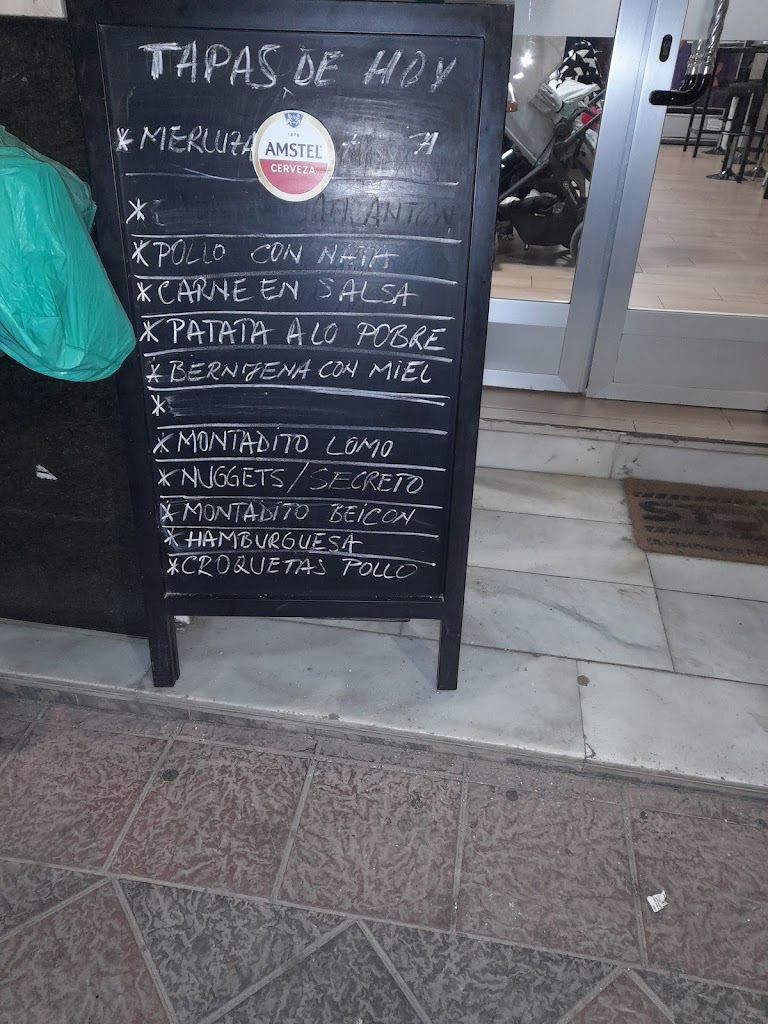 TAPAS DE HOY
* MERLUZA
1870
AMSTEL
CERVEZA
*
* POLLO CON NATA
* CARNE EN SALSA
* PATATA A LO POBRE
* BERNJENA CON MIEL
*
* MONTADITO LOMO
* NUGGETS/SECRETO
* MONTADITO BEICON
* HAMBURGUESA
* CROQUETAS POLLO